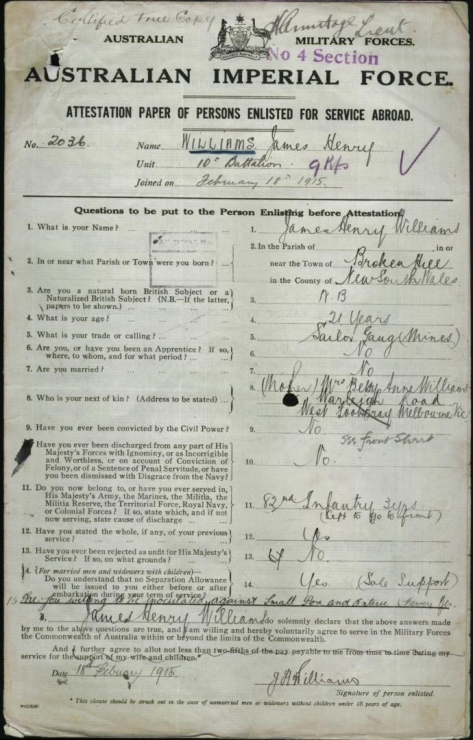 Certified True Copy HArmitage Lieut
AUSTRALIAN MILITARY FORCES.
No 4 Section
AUSTRALIAN IMPERIAL FORCE.
ATTESTATION PAPER OF PERSONS ENLISTED FOR SERVICE ABROAD.
No. 2036 Name WILLIAMS James Henry
Unit 10th Battalion. 9 Rfs
Joined on February 18th 1915.
Questions to be put to the Person Enlisting before Attestation.
1. What is your Name? ... ... ... 1. James Henry Williams
2. In or near what Parish or Town were you born? ... 2. In the Parish of in or
near the Town of Broken Hill
in the County of New South Wales
3. Are you a natural born British Subject or a
Naturalized British Subject? (N.B.—If the latter,
papers to be shown.) 3. N.B
4. What is your age? ... 4. 21 Years
5. What is your trade or calling? ... 5. Sailor Gang (Mines)
6. Are you, or have you been an Apprentice? If so,
where, to whom, and for what period? ... 6. No
7. Are you married? ... 7. No
8. Who is your next of kin? (Address to be stated) ... 8. (Mother) Mrs Betsy Anne Williams
Road
West Footscray Melbourne Vic
9. Have you ever been convicted by the Civil Power? 9. No
Front Street
Have you ever been discharged from any part of His
Majesty's Forces with Ignominy, or as Incorrigible
and Worthless, or on account of Conviction of
Felony, or of a Sentence of Penal Servitude, or have
you been Dismissed with Disgrace from the Navy? 10. No.
11. Do you now belong to, or have you ever served in,
His Majesty's Army, the Marines, the Militia, the
Militia Reserve, the Territorial Force, Royal Navy,
or Colonial Forces? If so, state which, and if not
now serving, state cause of discharge ... 11. 82nd Infantry 3 yrs.
(left to go to front)
12. Have you stated the whole, if any, of your previous
service? ... 12. Yes
13. Have you ever been rejected as unfit for His Majesty's
Service? If so, on what grounds? 13. No
14. (For married men and widowers with children)—
Do you understand that no Separation Allowance
will be issued to you either before or after
embarkation during your term of service? 14. Yes (Sole Support)
Are you willing to be inoculated against Small Pox and Enteric Fever
I, James Henry Williams do solemnly declare that the above answers made
by me to the above questions are true, and I am willing and hereby voluntarily agree to serve in the Military Forces
of the Commonwealth of Australia within or beyond the limits of the Commonwealth.
And I further agree to allot not less than two-fifths of the pay payable to me from time to time during my
service for the support of my wife and children.*
Date 18th February 1915 J H Williams
Signature of person enlisted.
* This clause should be struck out in the case of unmarried men or widowers without children under 18 years of age.